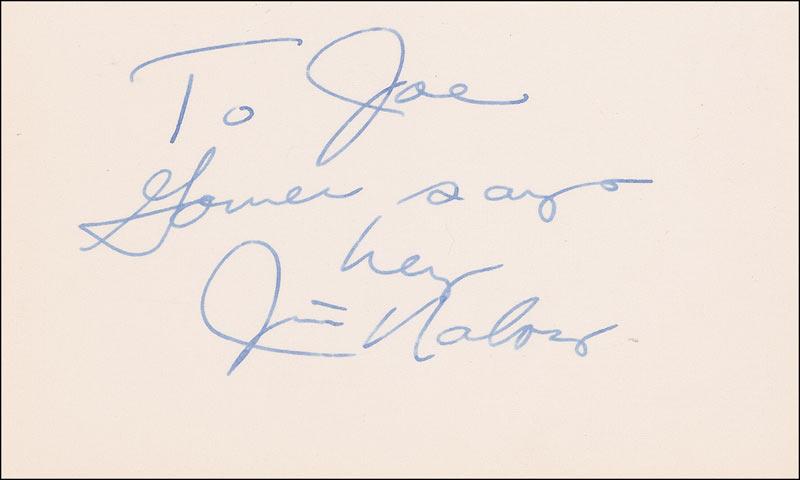 To Joe
Gomer says
hey
Jim Nabors